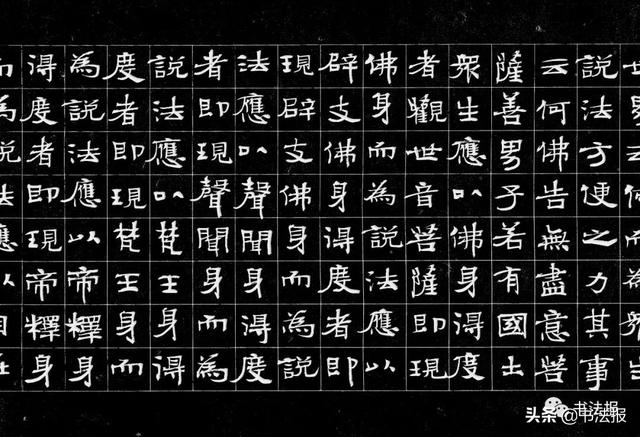 世界云何而為眾生
說法方便之力其事
云何佛告無盡意菩
薩善男子若有國土
眾生應以佛身得度
者觀世音菩薩即現
佛身而為說法應以
辟支佛身得度者即
現辟支佛身而為說
法應以聲聞身得度
者即現聲聞身而為
說法應以梵王身得
度者即現梵王身而
為說法應以帝釋身
得度者即現帝釋身
而為說法應以自在
书法报
头条 @书法报